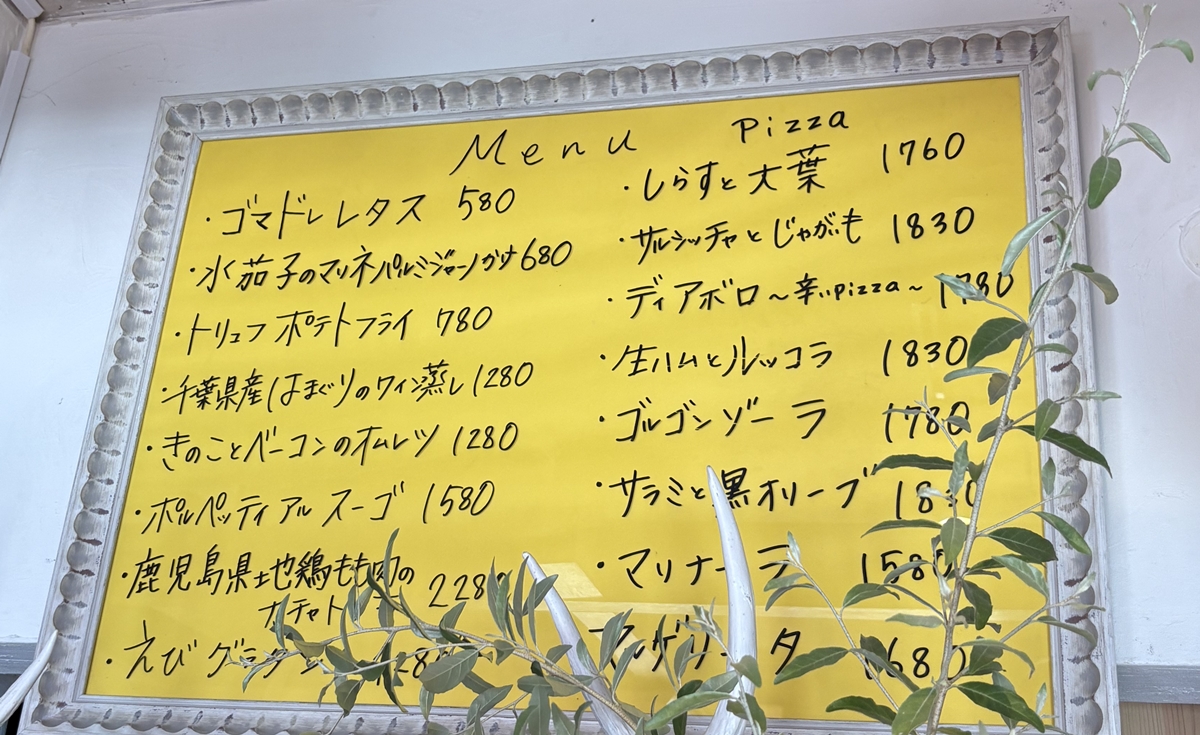 Menu
・ゴマドレレタス 580
・水茄子のマリネパルミジャーノがけ 680
・トリュフポテトフライ 780
・千葉県産はまぐりのワイン蒸し 1280
・きのことベーコンのオムレツ 1280
・ポルペッティアルスーゴ 1580
・鹿児島県地鶏もも肉の
・えび
Pizza
・しらすと大葉 1760
・サルシッチャとじゃがいも 1830
・ディアボロ～辛いpizza～ 1780
・生ハムとルッコラ 1830
・ゴルゴンゾーラ 1780
・サラミと黒オリーブ
・マリナーラ 1580